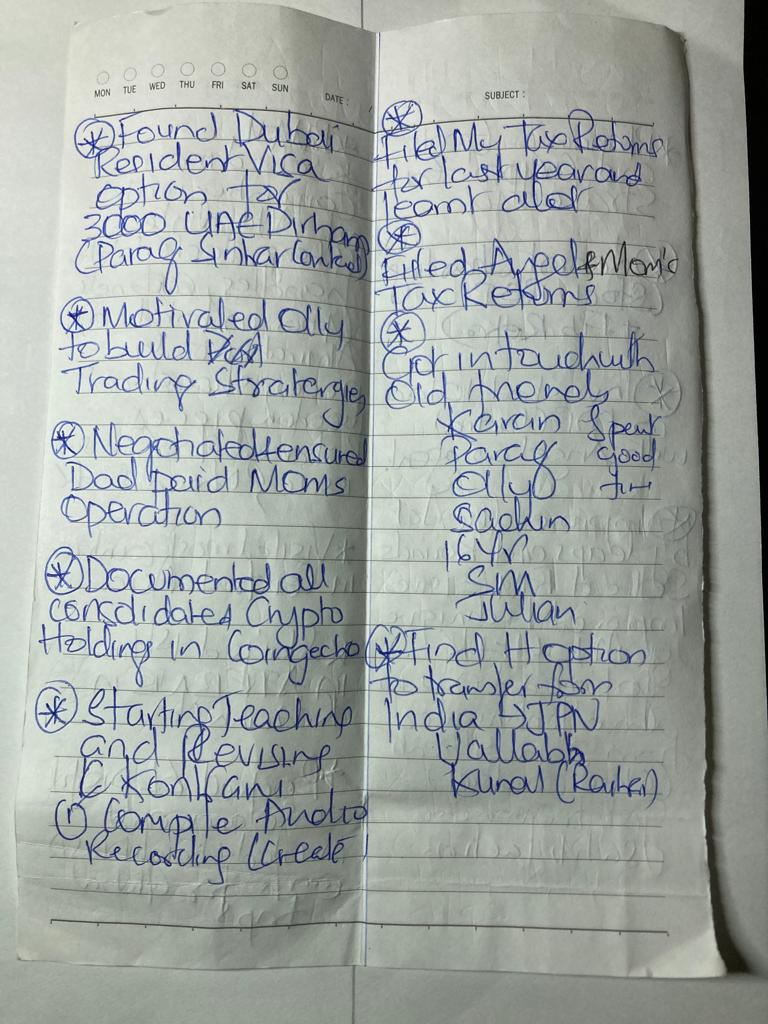 MON TUE WED THU FRI SAT SUN
DATE :
Found Dubai
Resident Visa
option for
3000 UAE Dirham
(Parag Sinkar Contact)
Motivated Olly
to build
Trading Stratergies
Negotiated + ensured
Dad paid Moms
Operation
Documented all
consolidated Crypto
Holdings in Coingecko
Starting Teaching
and Revising
Konkani
① Compile Audio
Recording (Create)
SUBJECT :
Filed My Tax Returns
for last year and
learnt alot
Filed & Mom's
Tax Returns
Got in touch with
Old friends
Karan Spent
Parag good
Olly time
Sachin
16 Yr
SM
Julian
Find option
to transfer from
India → JPN
Vallabh
Kunal